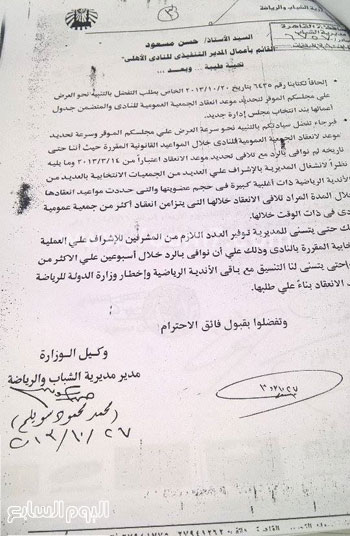 والرياضة
القاهرة
(٣)
السيد الأستاذ/ حسن مسعود
القائم بأعمال المدير التنفيذى للنادى الأهلى
تحية طيبة ... وبعد ...
- إلحاقاً لكتابنا رقم ٦٤٣٥ بتاريخ ٢٠١٣/١٠/٢٠ بطلب التفضل بالتنبيه نحو العرض
على مجلسكم الموقر لتحديد موعد انعقاد الجمعية العمومية للنادى والمتضمن جدول
أعمالها بند انتخاب مجلس إدارة جديد.
- فبرجاء تفضل سيادتكم بالتنبيه نحو وسرعة العرض علي مجلسكم الموقر وسرعة تحديد
موعد لانعقاد الجمعية العمومية للنادى خلال المواعيد القانونية المقررة حيث أننا حتى
تاريخه لم نوافى بالرد مع تلافى تحديد موعد الانعقاد اعتباراً من ٢٠١٣/٣/١٤ وما يليه
نظراً لانشغال المديرية بالإشراف علي العديد من الجمعيات الانتخابية بالعديد من
الأندية الرياضية ذات أغلبية كبيرة فى حجم عضويتها والتى حددت مواعيد انعقادها
خلال المدة المراد تلافى الانعقاد خلالها التى يتزامن انعقاد أكثر من جمعية عمومية
فى ذات الوقت خلالها.
حتى يتسنى للمديرية توفير العدد اللازم من المشرفين للإشراف علي العملية
المقررة بالنادى وذلك علي أن نوافى بالرد خلال أسبوعين علي الأكثر من
وحتى يتسنى لنا التنسيق مع باقى الأندية الرياضية وإخطار وزارة الدولة للرياضة
الانعقاد بناءً علي طلبها.
وتفضلوا بقبول فائق الاحترام
وكيل الوزارة
مدير مديرية الشباب والرياضة
٢٠١٣/١٠/٢٧
اليوم السابع